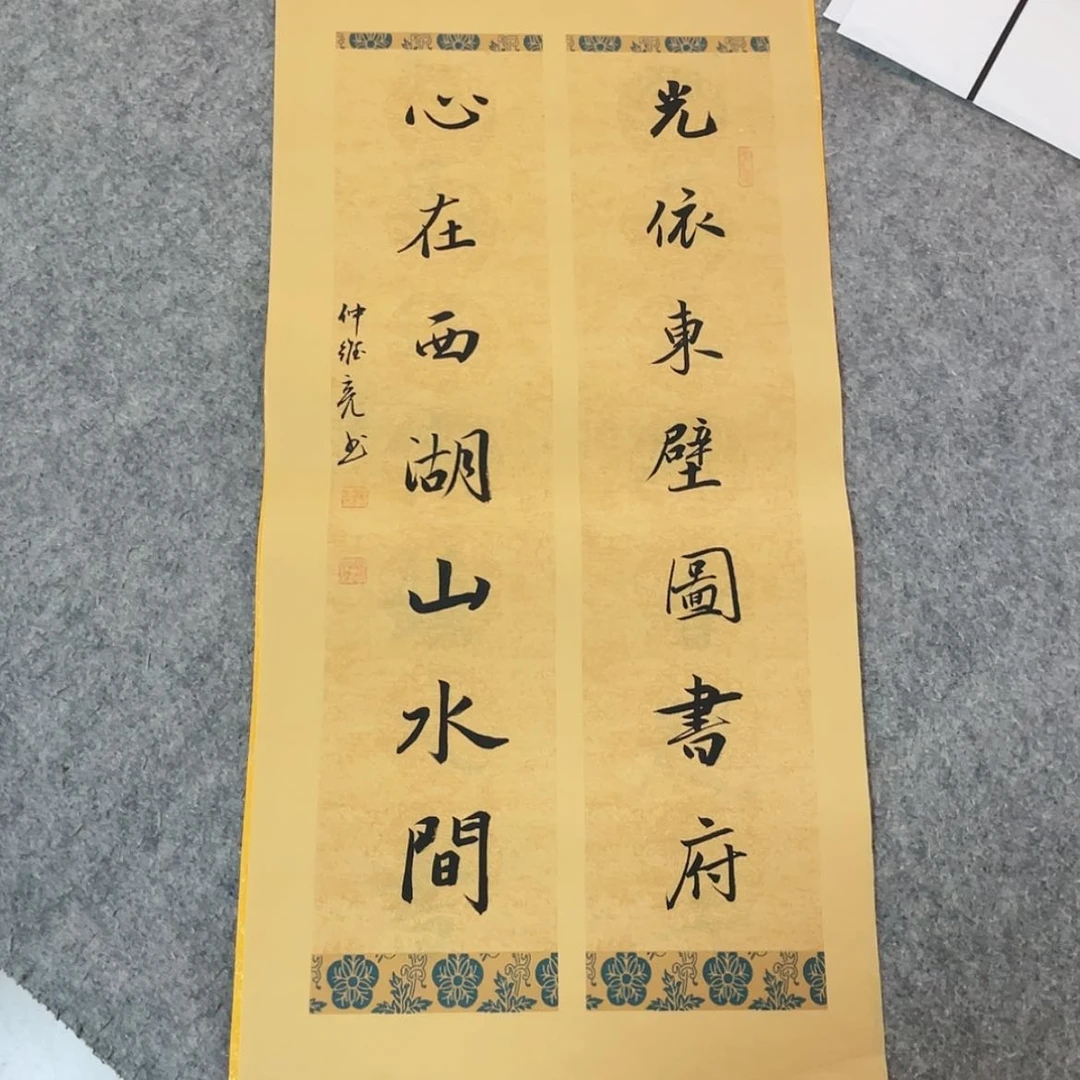 光依東壁圖書府
心在西湖山水間
仲維亮书